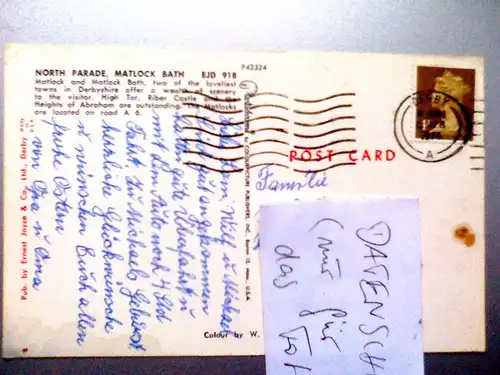 P42324
NORTH PARADE, MATLOCK BATH EJD 918
Matlock and Matlock Bath, two of the loveliest
towns in Derbyshire offer a wealth of scenery
to the visitor. High Tor, Riber Castle and the
Heights of Abraham are outstanding. The Matlocks
are located on road A 6.
Pub. by Ernest Joyce & Co., Ltd., Derby
gut angekommen
hatten gute Überfahrt u
mit dem Auto noch 4 Std
Fahrt. zu Michaels Geburtst
herzliche Glückwünsche
u wünschen Euch allen
Frohe Ostern
von Oma u Opa
Colour by W.
POST CARD
Familie
DERBY
A
DATENSCH
(nur für
das Fot